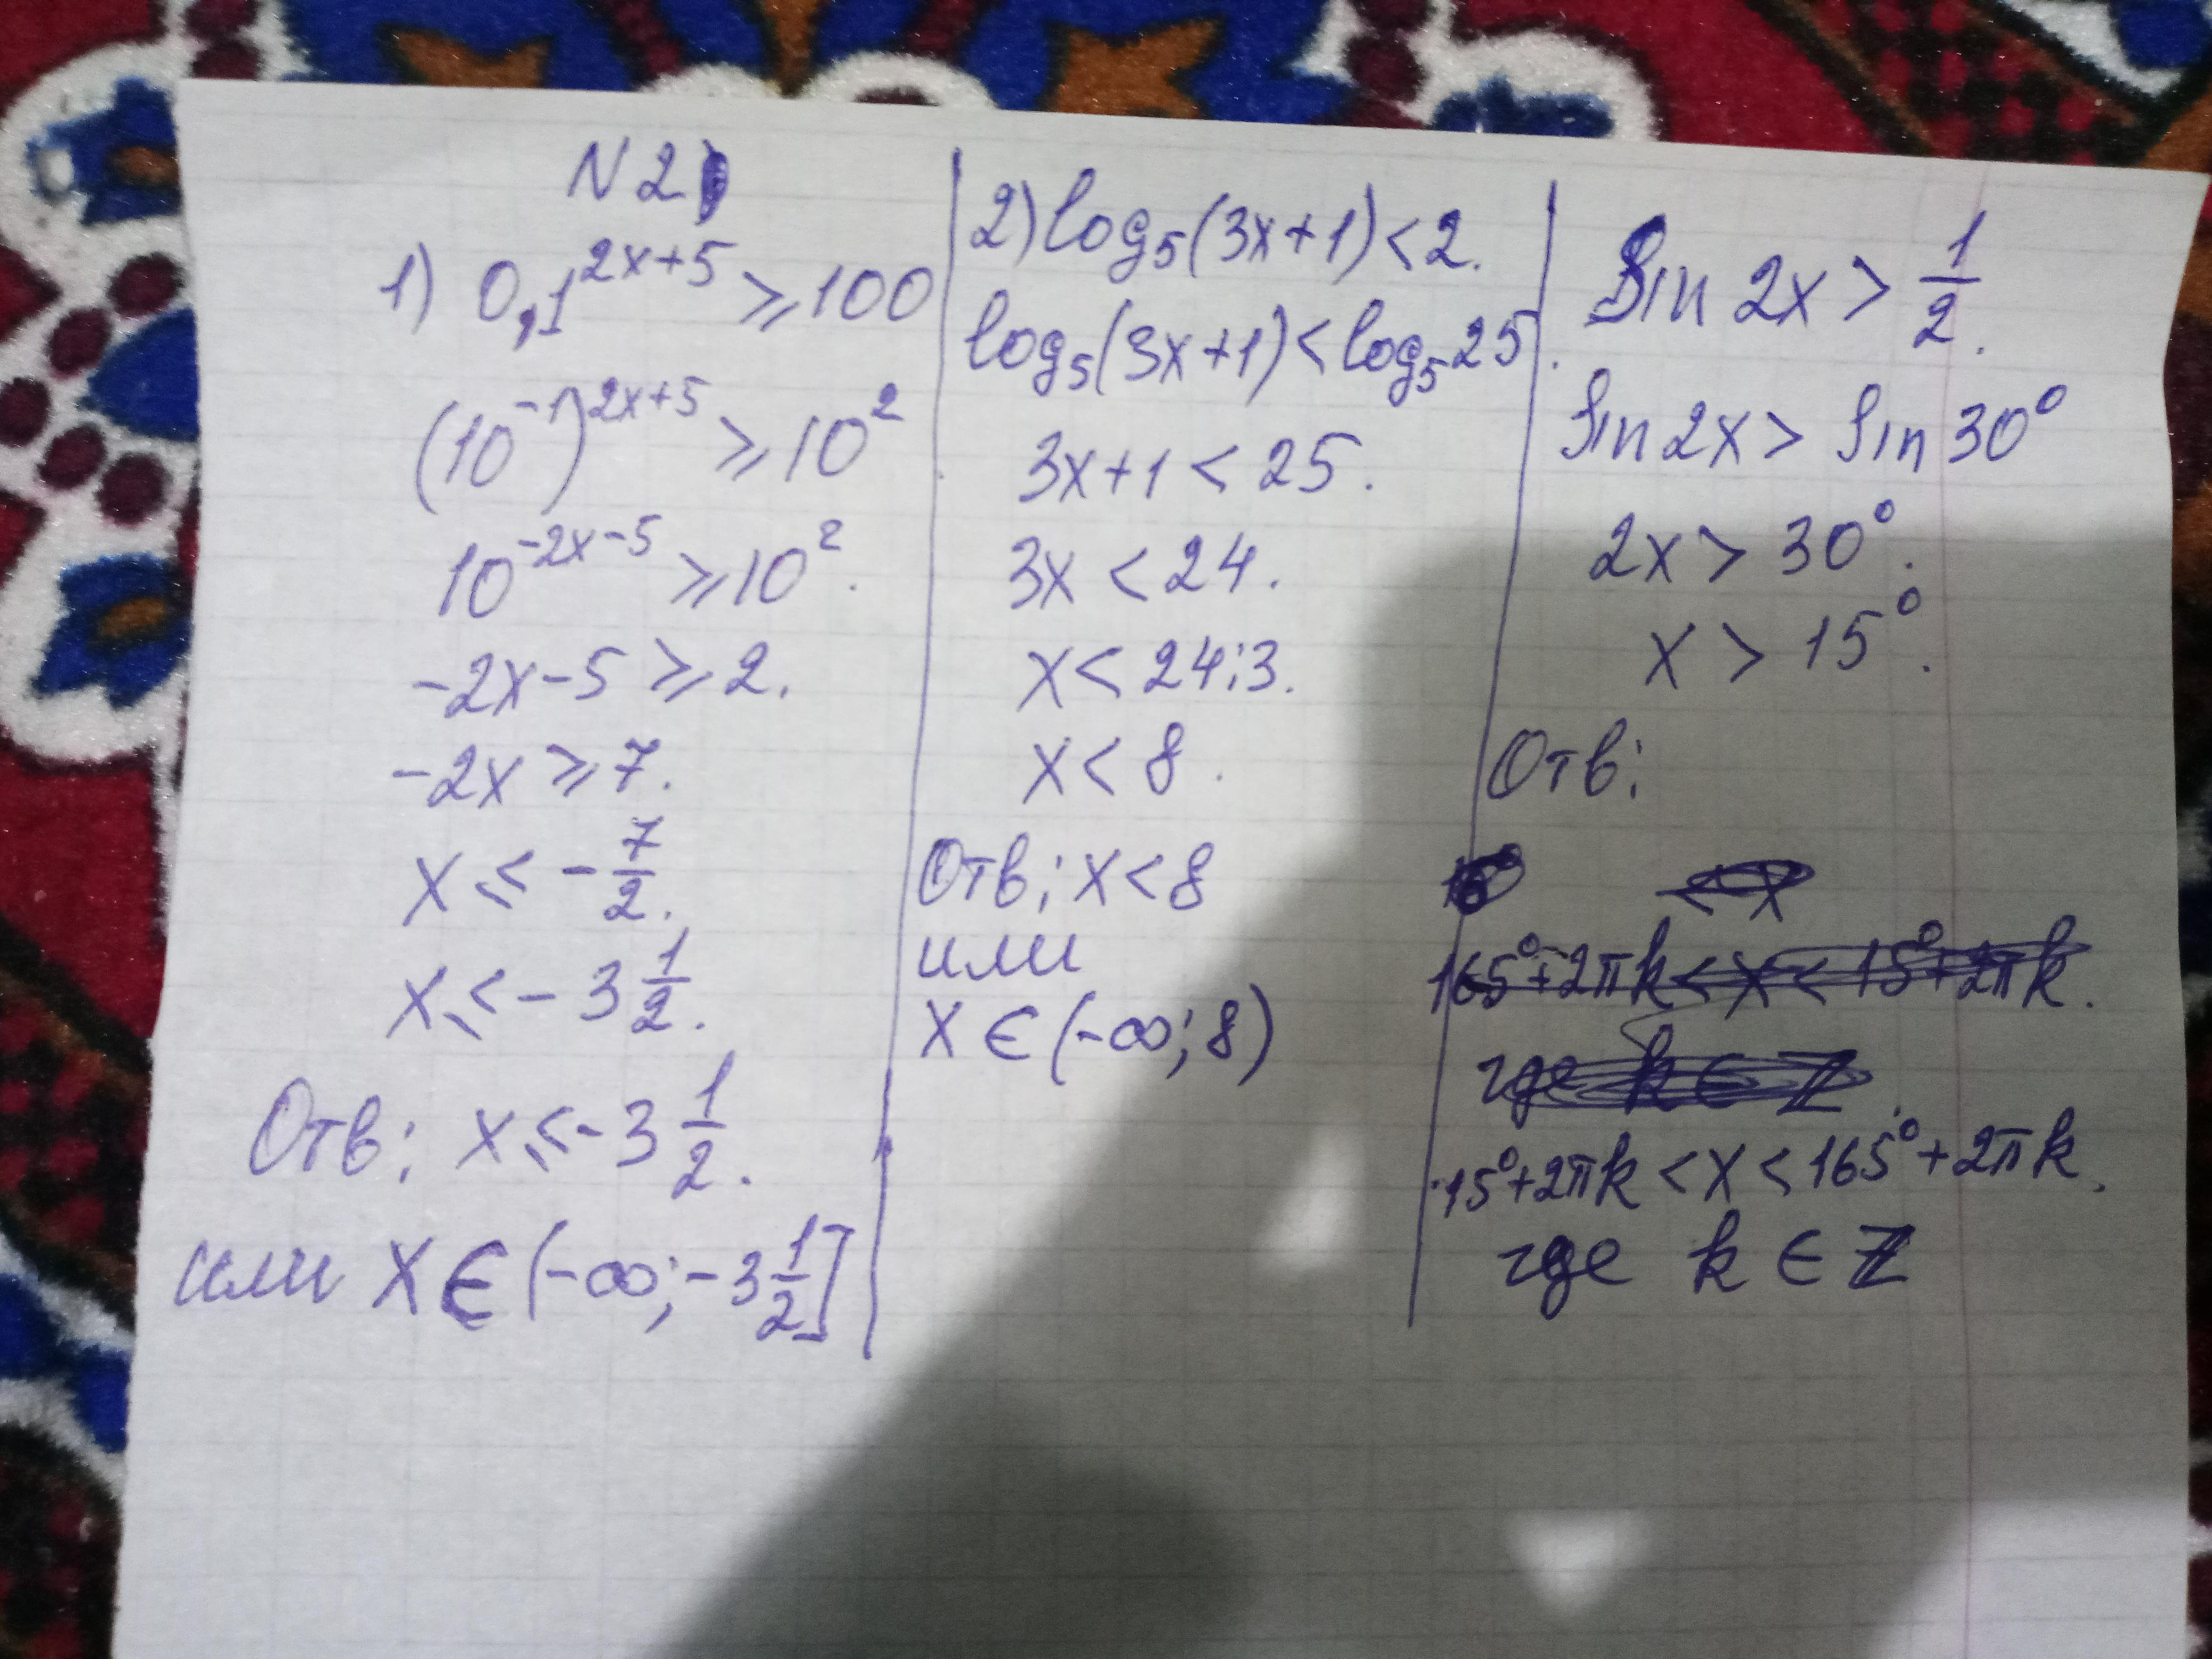 N2
1) 0,1^{2x+5} ⩾ 100
(10^{-1})^{2x+5} ⩾ 10^2
10^{-2x-5} ⩾ 10^2.
-2x-5 ⩾ 2.
-2x ⩾ 7.
x ⩽ -7/2.
x ⩽ -3 1/2.
Отв: x ⩽ -3 1/2.
или x ∈ (-∞; -3 1/2]
2) log₅(3x+1) < 2.
log₅(3x+1) < log₅25.
3x+1 < 25.
3x < 24.
x < 24:3.
x < 8.
Отв: x < 8
или
x ∈ (-∞; 8)
Sin 2x > 1/2.
Sin 2x > Sin 30°
2x > 30°.
x > 15°.
Отв:
< x
165°+2πk < x < 15°+2πk.
где k ∈ Z.
15°+2πk < x < 165°+2πk.
где k ∈ Z